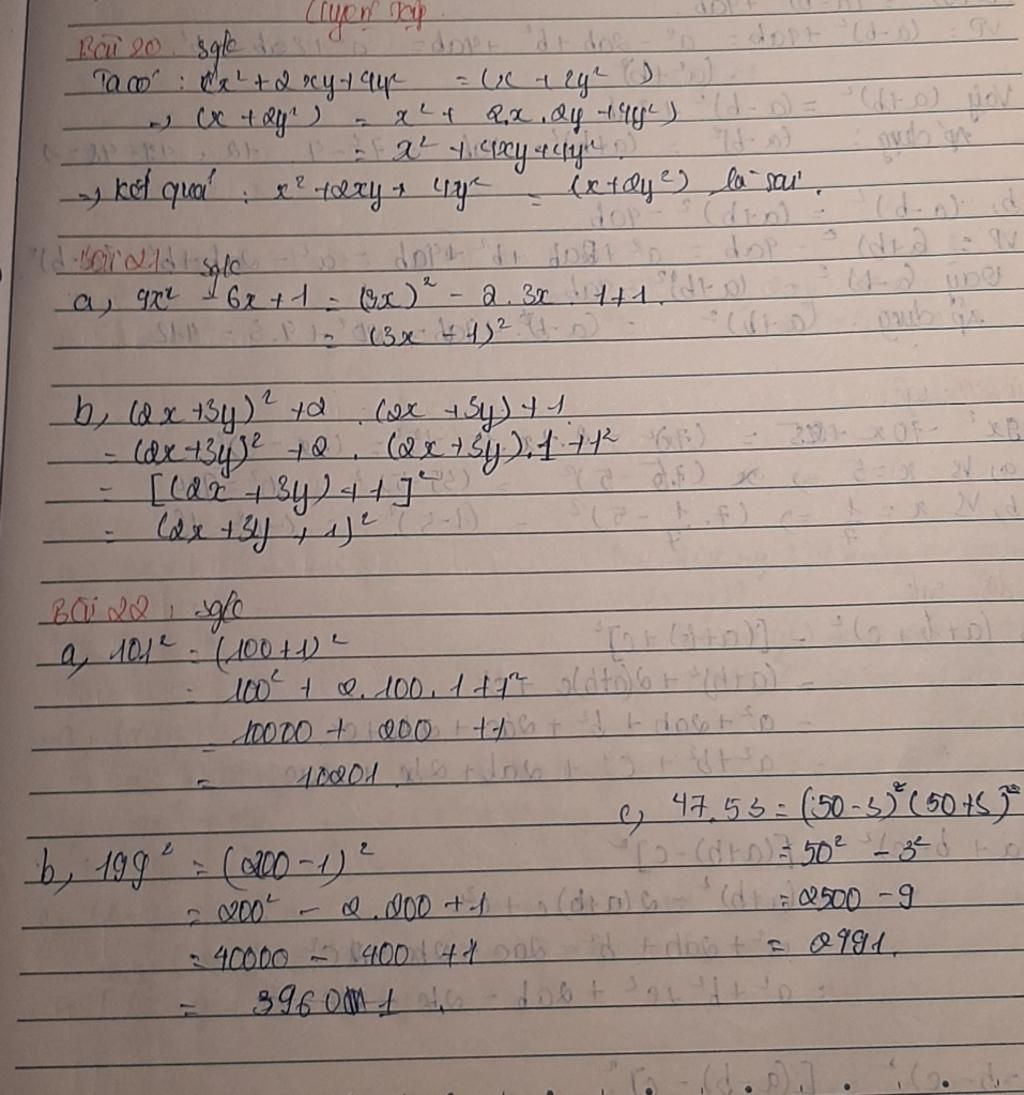 Luyện tập
Bài 20 sgk
Ta có : x² + 2xy + 4y² = (x + 2y²)
→ (x + 2y²) = x² + 2.x.2y + 4y²)
= x² + 4xy + 4y²
→ Kết quả : x² + 2xy + 4y² = (x + 2y²) là sai.
Bài 21 sgk
a, 9x² - 6x + 1 = (3x)² - 2.3x.1 + 1.
= (3x - 1)²
b, (2x + 3y)² + 2 . (2x + 3y) + 1
= (2x + 3y)² + 2 . (2x + 3y).1 + 1²
= [(2x + 3y) + 1]²
= (2x + 3y + 1)²
Bài 22 : sgk
a, 101² = (100 + 1)²
= 100² + 2.100.1 + 1²
= 10000 + 200 + 1
= 10201
c, 47.53 = (50 - 3)² (50 + 3)²
= 50² - 3²
= 2500 - 9
= 2491.
b, 199² = (200 - 1)²
= 200² - 2.200 + 1
= 40000 - 400 + 1
= 39601